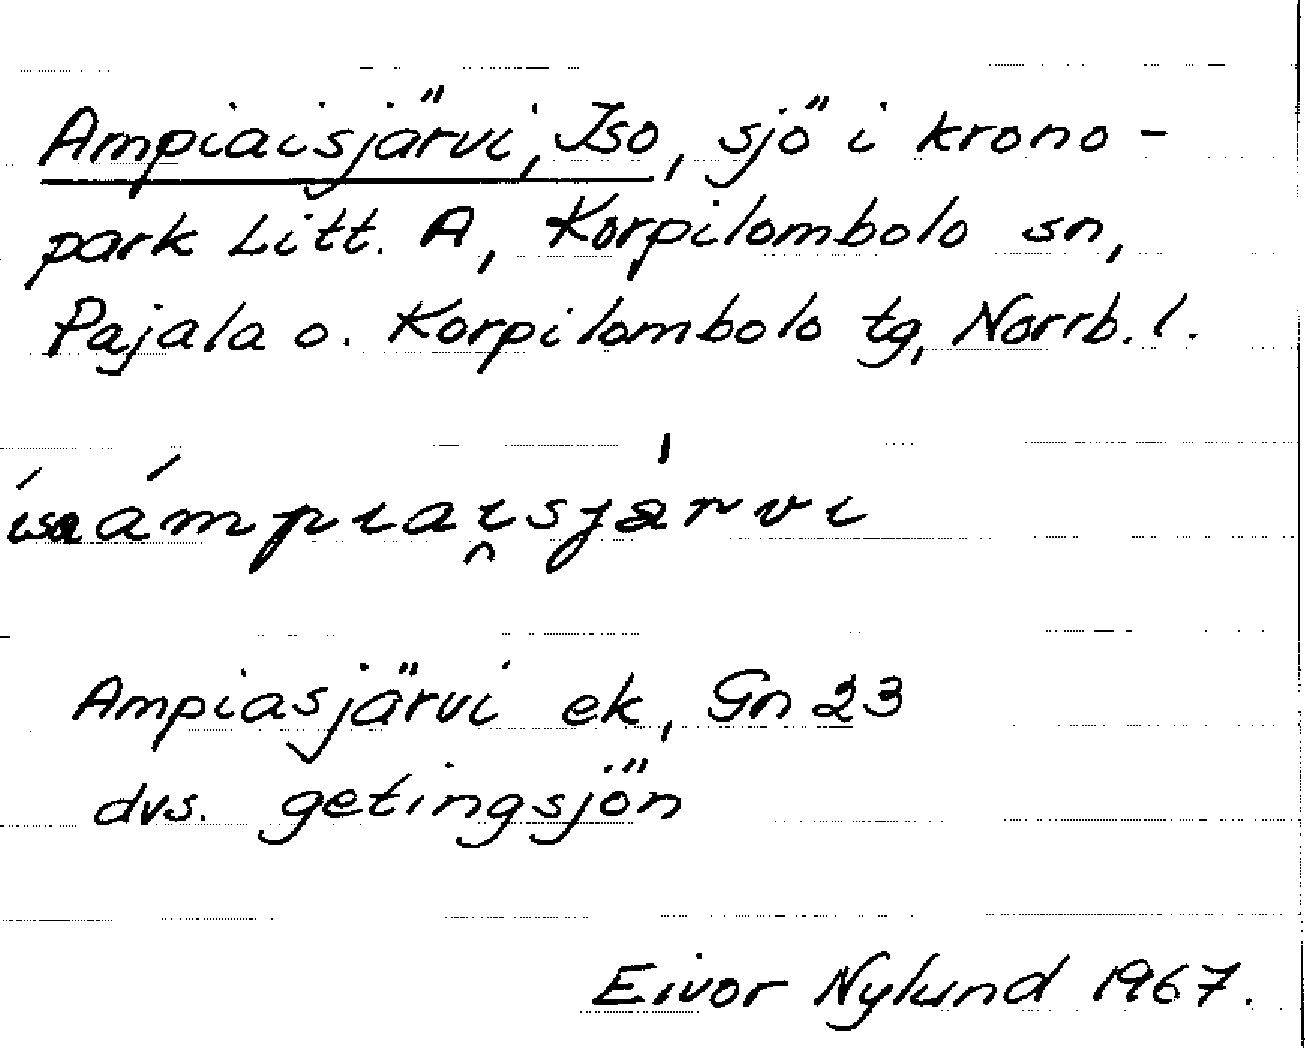 Ampiaisjärvi, Iso, sjö i krono-
park Litt. A, Korpilombolo sn,
Pajala o. Korpilombolo tg, Norrb. l.
ísa ámpiai̯sjärvi
Ampiasjärvi ek, Gn 23
dvs. getingsjön
Eivor Nylund 1967.